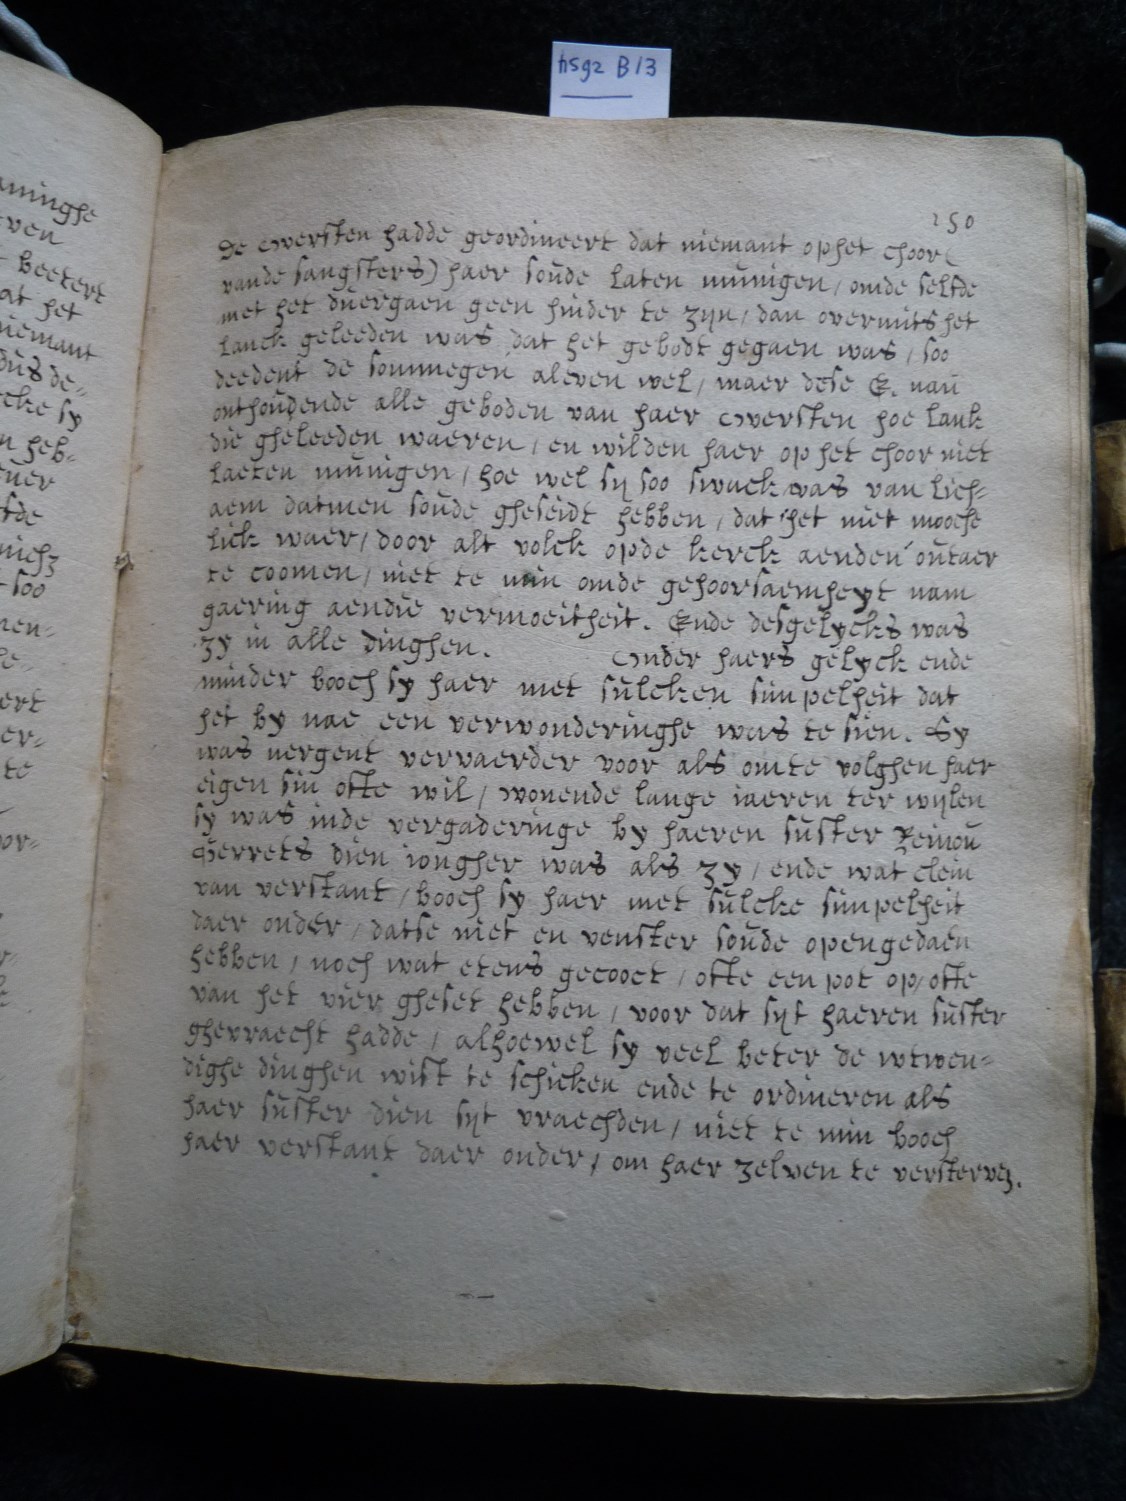 hsg2 B13
250
De Oversten hadde geordineert dat niemant ophet choor (
vande sangsters) haer soude laten munigen / omde selfde
met het duergaen geen hinder te zijn / dan overmits het
lanck geleeden was dat het gebodt gegaen was / soo
deedent de sommegen aleven wel / maer dese E. nau
onthoudende alle geboden van haer Oversten hoe lank
die gheleeden waeren / en wilden haer op het choor niet
laeten munigen / hoe wel sij soo swack was van lich-
aem datmen soude gheseidt hebben / dat het niet mooche
lick waer / door alt volck opde kerck aenden outaer
te coomen / niet te min omde gehoorsaemheyt nam
gaering aendie vermoeitheit. Ende desgelycks was
zy in alle dinghen. Onder haers gelyck ende
minder booch sy haer met sulcken simpelheit dat
het by nae een verwonderinghe was te sien. Sy
was nergent vervaerder voor als omte volghen haer
eigen sin ofte wil / wonende lange iaeren ter wijlen
sy was inde vergaderinge by haeren suster Reinou
Gerrets dien iongher was als zy / ende wat clein
van verstant / booch sy haer met sulcke simpelheit
daer onder / datse niet en venster soude opengedaen
hebben / noch wat etens gecooct / ofte een pot op / ofte
van het vier gheset hebben / voor dat sijt haeren suster
ghevraecht hadde / alhoewel sy veel beter de wtwen-
dighe dinghen wist te schicken ende te ordineren als
haer suster dien sijt vraechden / niet te min booch
haer verstant daer onder / om haer zelven te verstervez.
aminghe
ven
beetert
at het
niemant
dus de-
cke sy
n heb-
fde
soo
men-
ert
er-
te